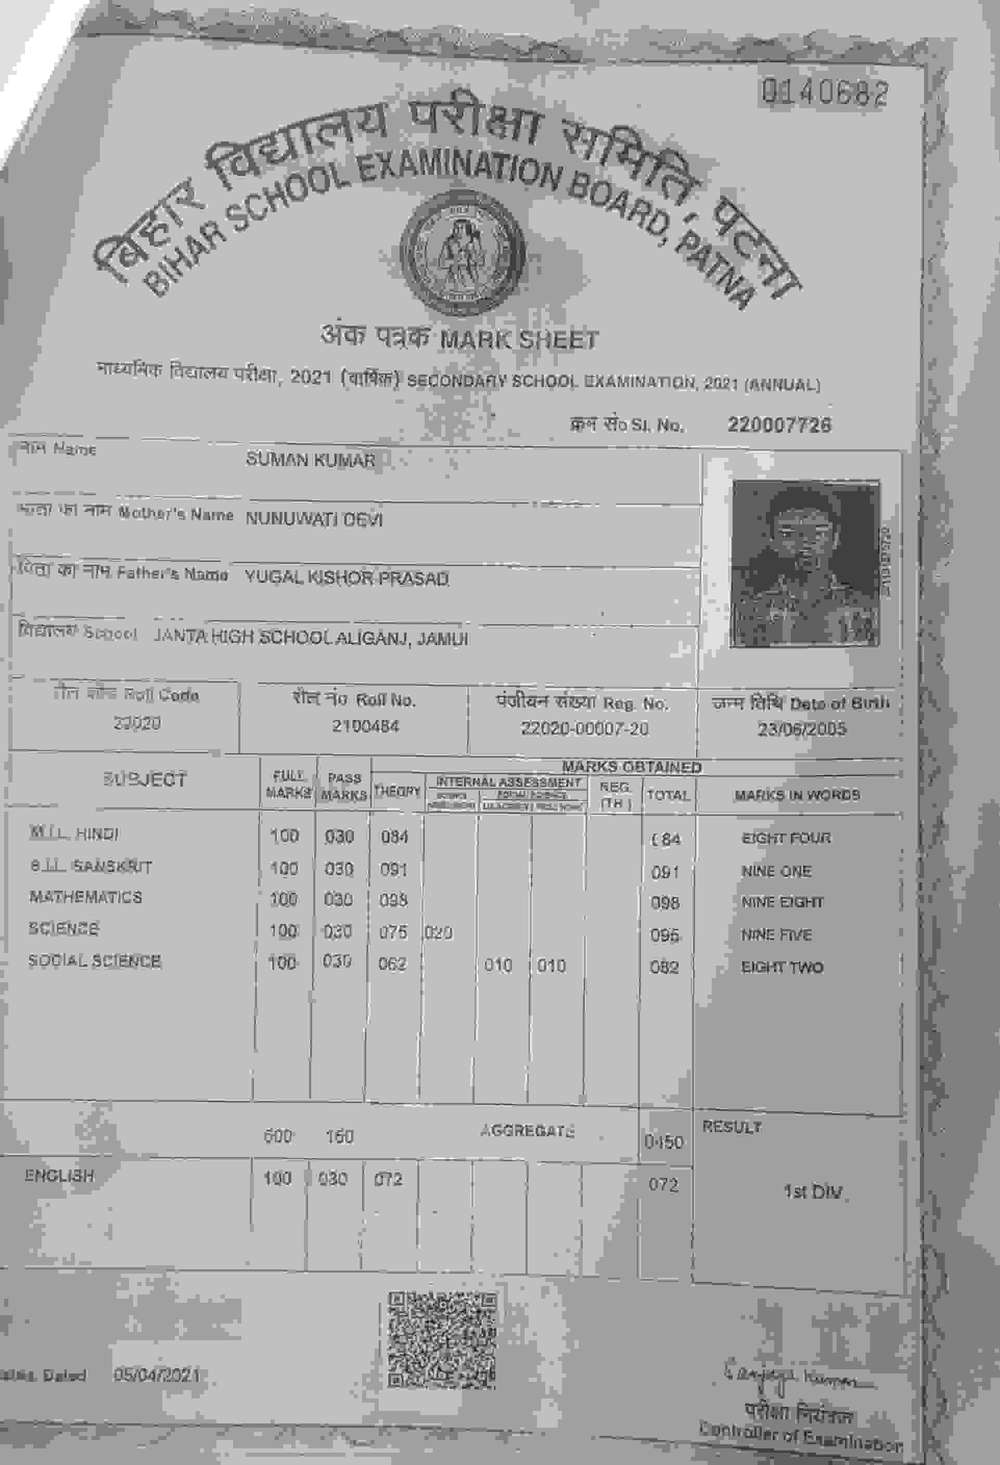 0140682
बिहार विद्यालय परीक्षा समिति, पटना
BIHAR SCHOOL EXAMINATION BOARD, PATNA
अंक पत्रक MARK SHEET
माध्यमिक विद्यालय परीक्षा, 2021 (वार्षिक) SECONDARY SCHOOL EXAMINATION, 2021 (ANNUAL)
क्रम सं० Sl. No. 220007726
नाम Name SUMAN KUMAR
माता का नाम Mother's Name NUNUWATI DEVI
पिता का नाम Father's Name YUGAL KISHOR PRASAD
विद्यालय School JANTA HIGH SCHOOL ALIGANJ, JAMUI
रौल कोड Roll Code रौल नं० Roll No. पंजीयन संख्या Reg. No. जन्म तिथि Date of Birth
22020 2100484 22020-00007-20 23/06/2005
SUBJECT FULL MARKS PASS MARKS MARKS OBTAINED
THEORY INTERNAL ASSESSMENT REG. (TH.) TOTAL MARKS IN WORDS
SCIENCE SOCIAL SCIENCE
M.I.L. HINDI 100 030 084 084 EIGHT FOUR
S.I.L. SANSKRIT 100 030 091 091 NINE ONE
MATHEMATICS 100 030 098 098 NINE EIGHT
SCIENCE 100 030 075 020 095 NINE FIVE
SOCIAL SCIENCE 100 030 062 010 010 082 EIGHT TWO
500 150 AGGREGATE 0450 RESULT
ENGLISH 100 030 072 072 1st DIV.
Dated 05/04/2021
Sanjay Kumar
परीक्षा नियंत्रक
Controller of Examination